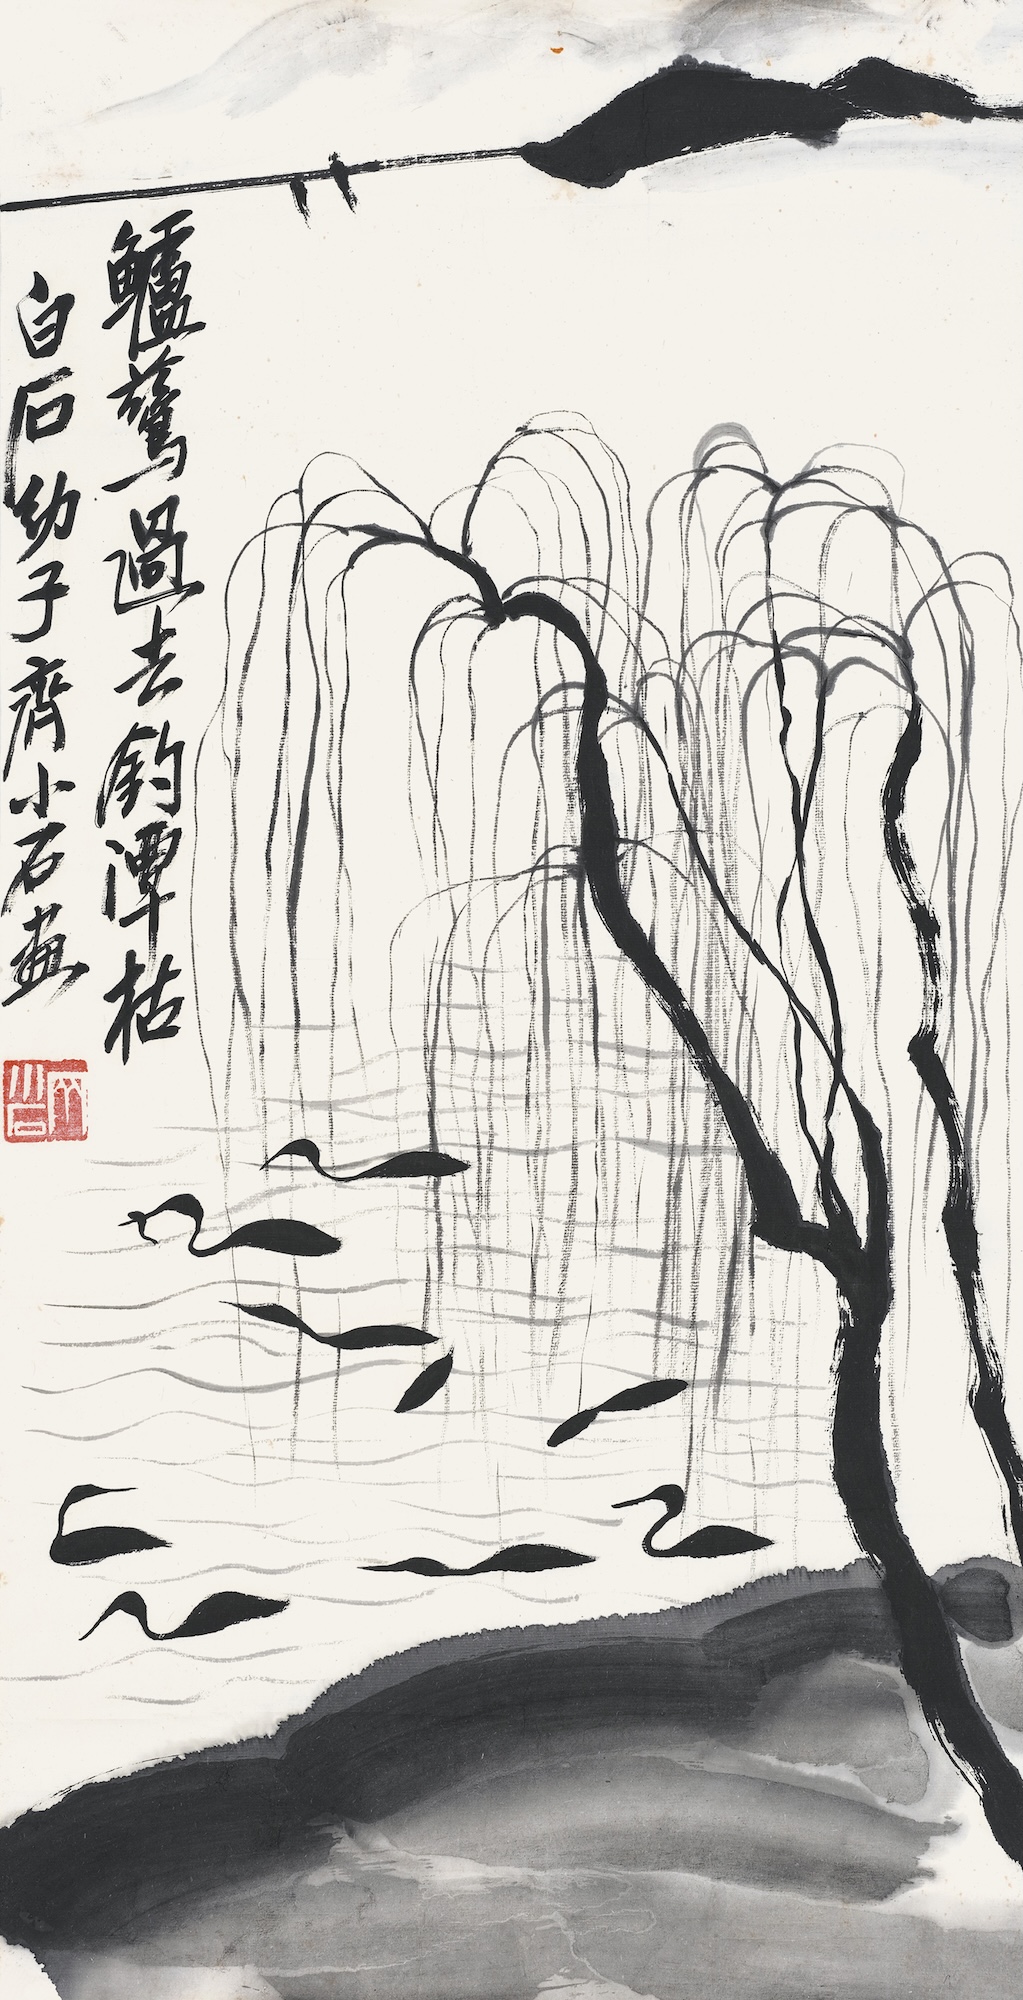 鱸鶿過去釣潭枯
白石幼子齊小石畫